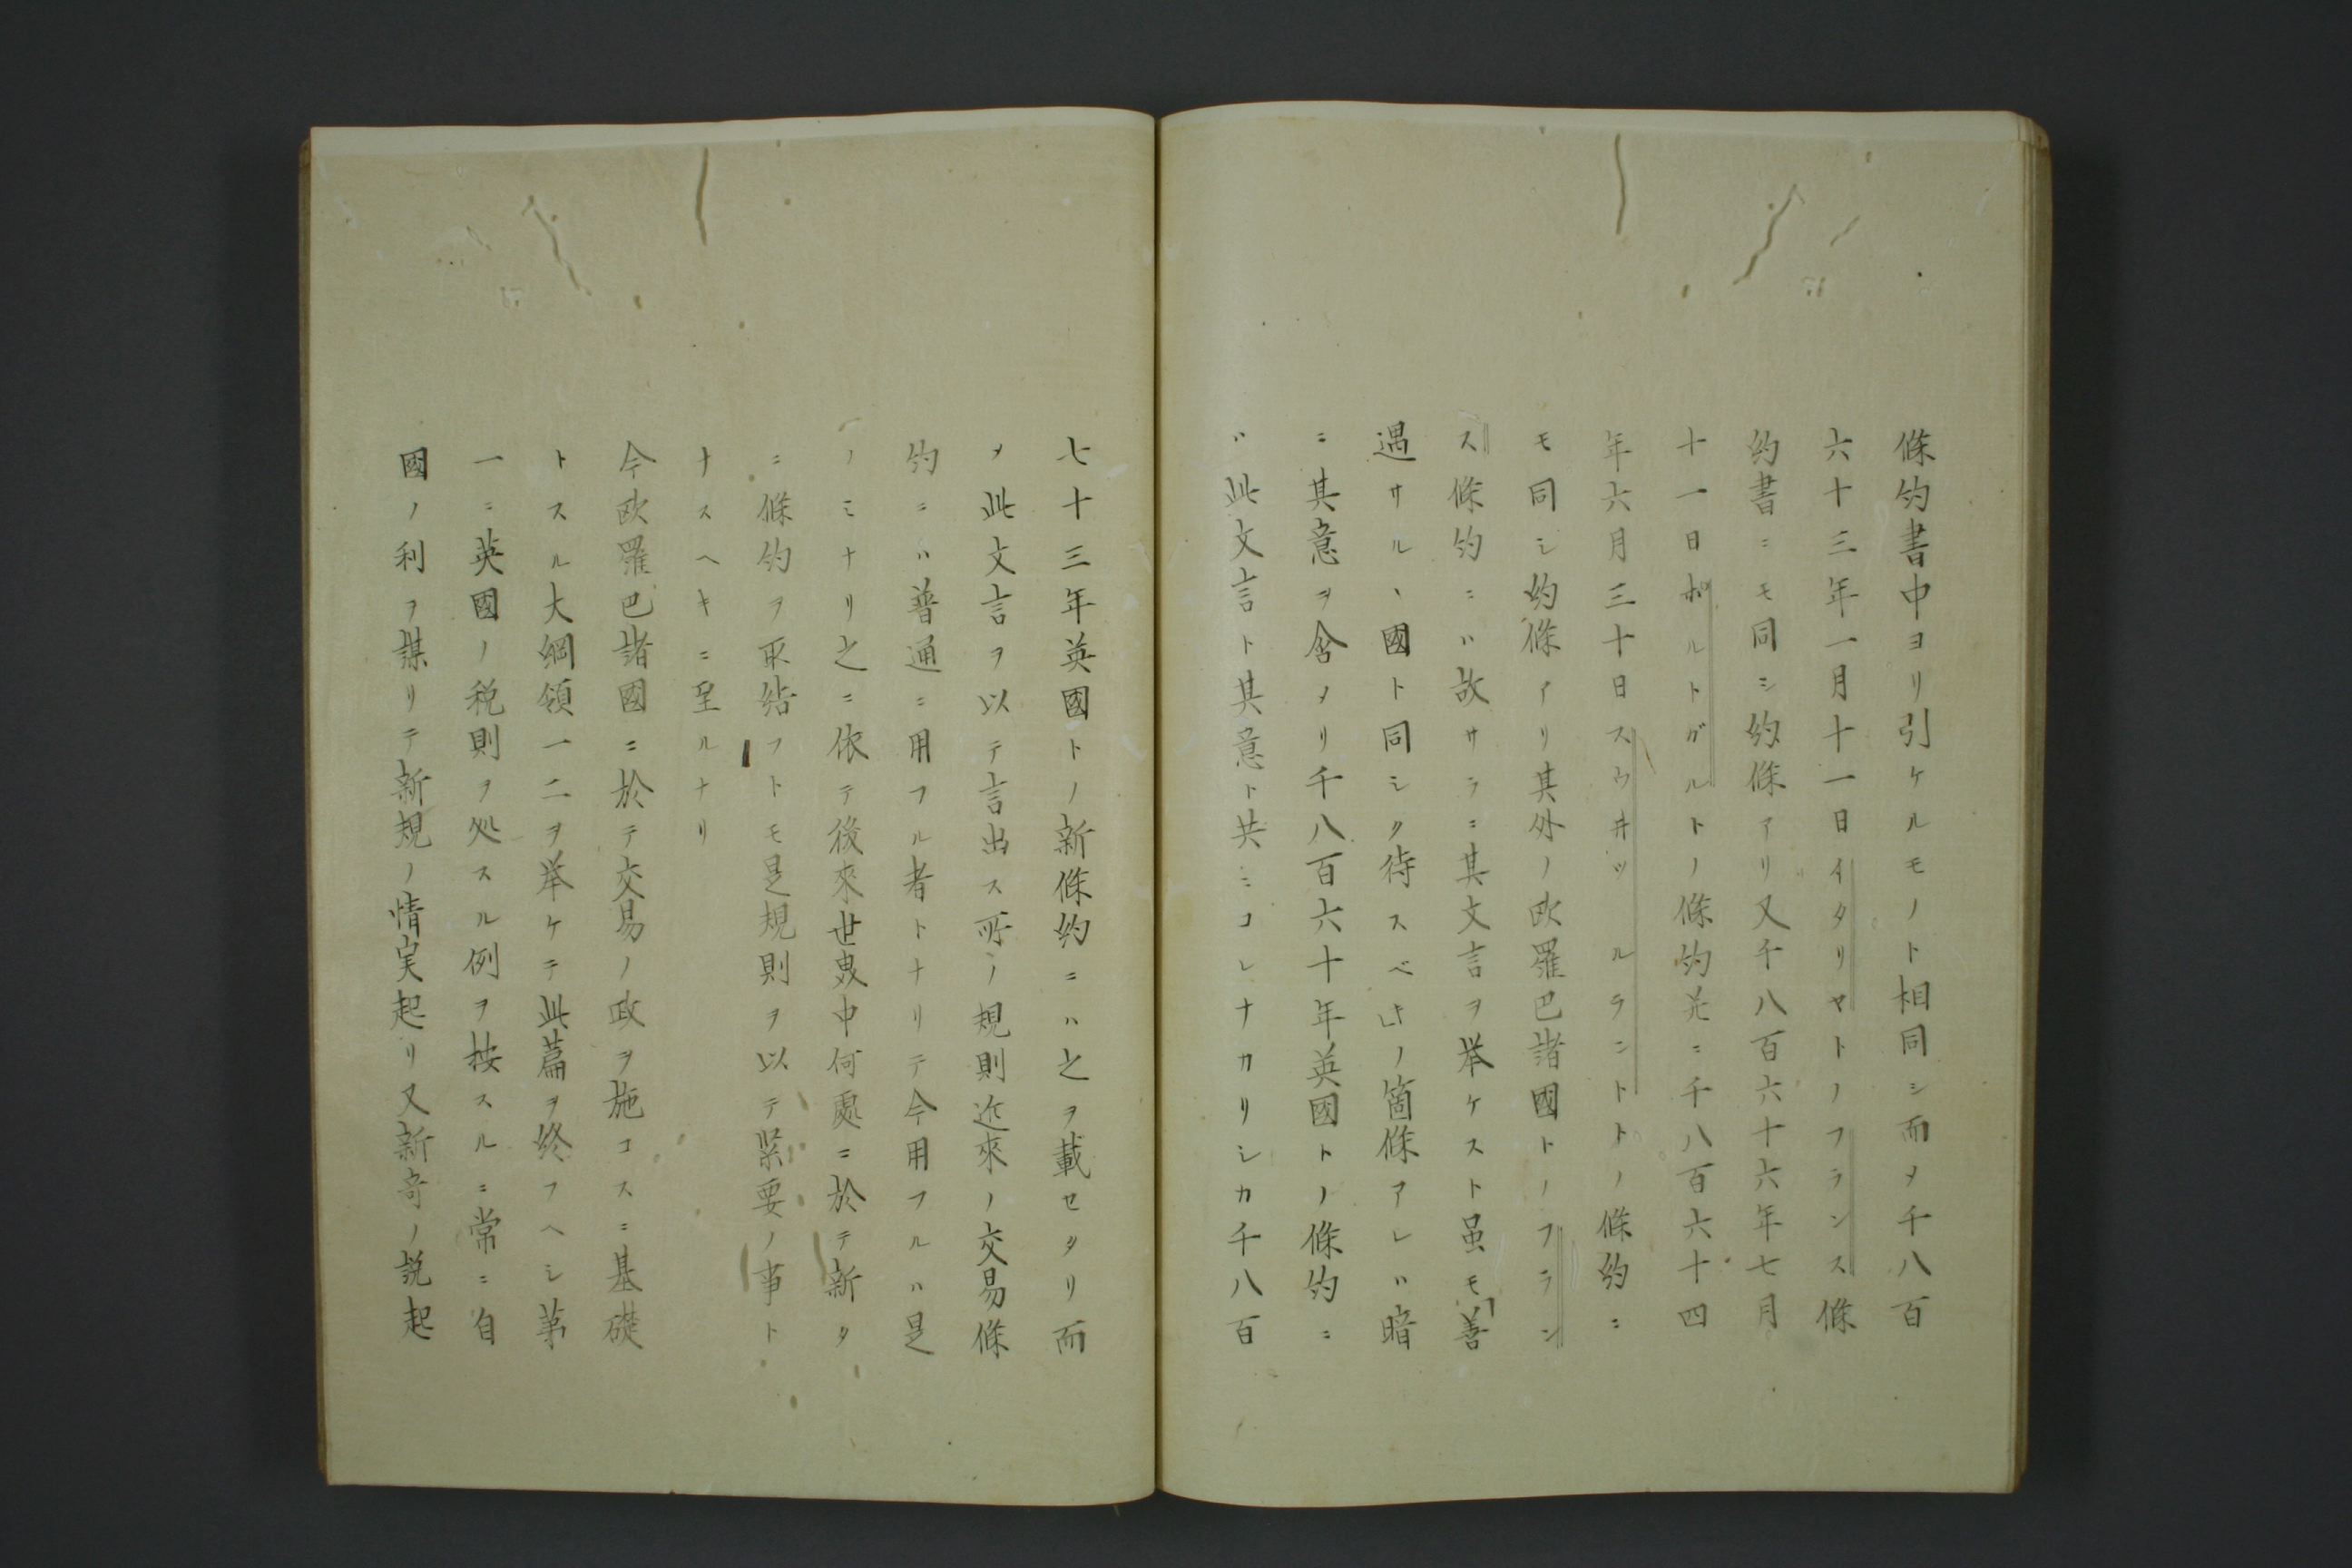 條約書中ヨリ引ケルモノト相同シ而メ千八百
六十三年一月十一日イタリヤトノフランス條
約書ニモ同シ約條アリ又千八百六十六年七月
十一日ポルトガルトノ條約並ニ千八百六十四
年六月三十日スウ井ツルラントトノ條約ニ
モ同シ約條アリ其外ノ欧羅巴諸國トノフラン
ス條約ニハ故サラニ其文言ヲ挙ケスト虽モ「善
遇サル、國ト同シク待スベキ」ノ箇條アレハ暗
ニ其意ヲ含メリ千八百六十年英國トノ條約ニ
ハ此文言ト其意ト共ニコレナカリシカ千八百
七十三年英國トノ新條約ニハ之ヲ載セタリ而
メ此文言ヲ以テ言出ス所ノ規則近來ノ交易條
約ニハ普通ニ用フル者トナリテ今用フルハ是
ノミナリ之ニ依テ後來世界中何處ニ於テ新タ
ニ條約ヲ取結フトモ是規則ヲ以テ緊要ノ事ト
ナスヘキニ至ルナリ
今欧羅巴諸國ニ於テ交易ノ政ヲ施コスニ基礎
トスル大綱領一二ヲ挙ケテ此篇ヲ終フヘシ苐
一ニ英國ノ税則ヲ処スル例ヲ按スルニ常ニ自
國ノ利ヲ謀リテ新規ノ情実起リ又新奇ノ説起